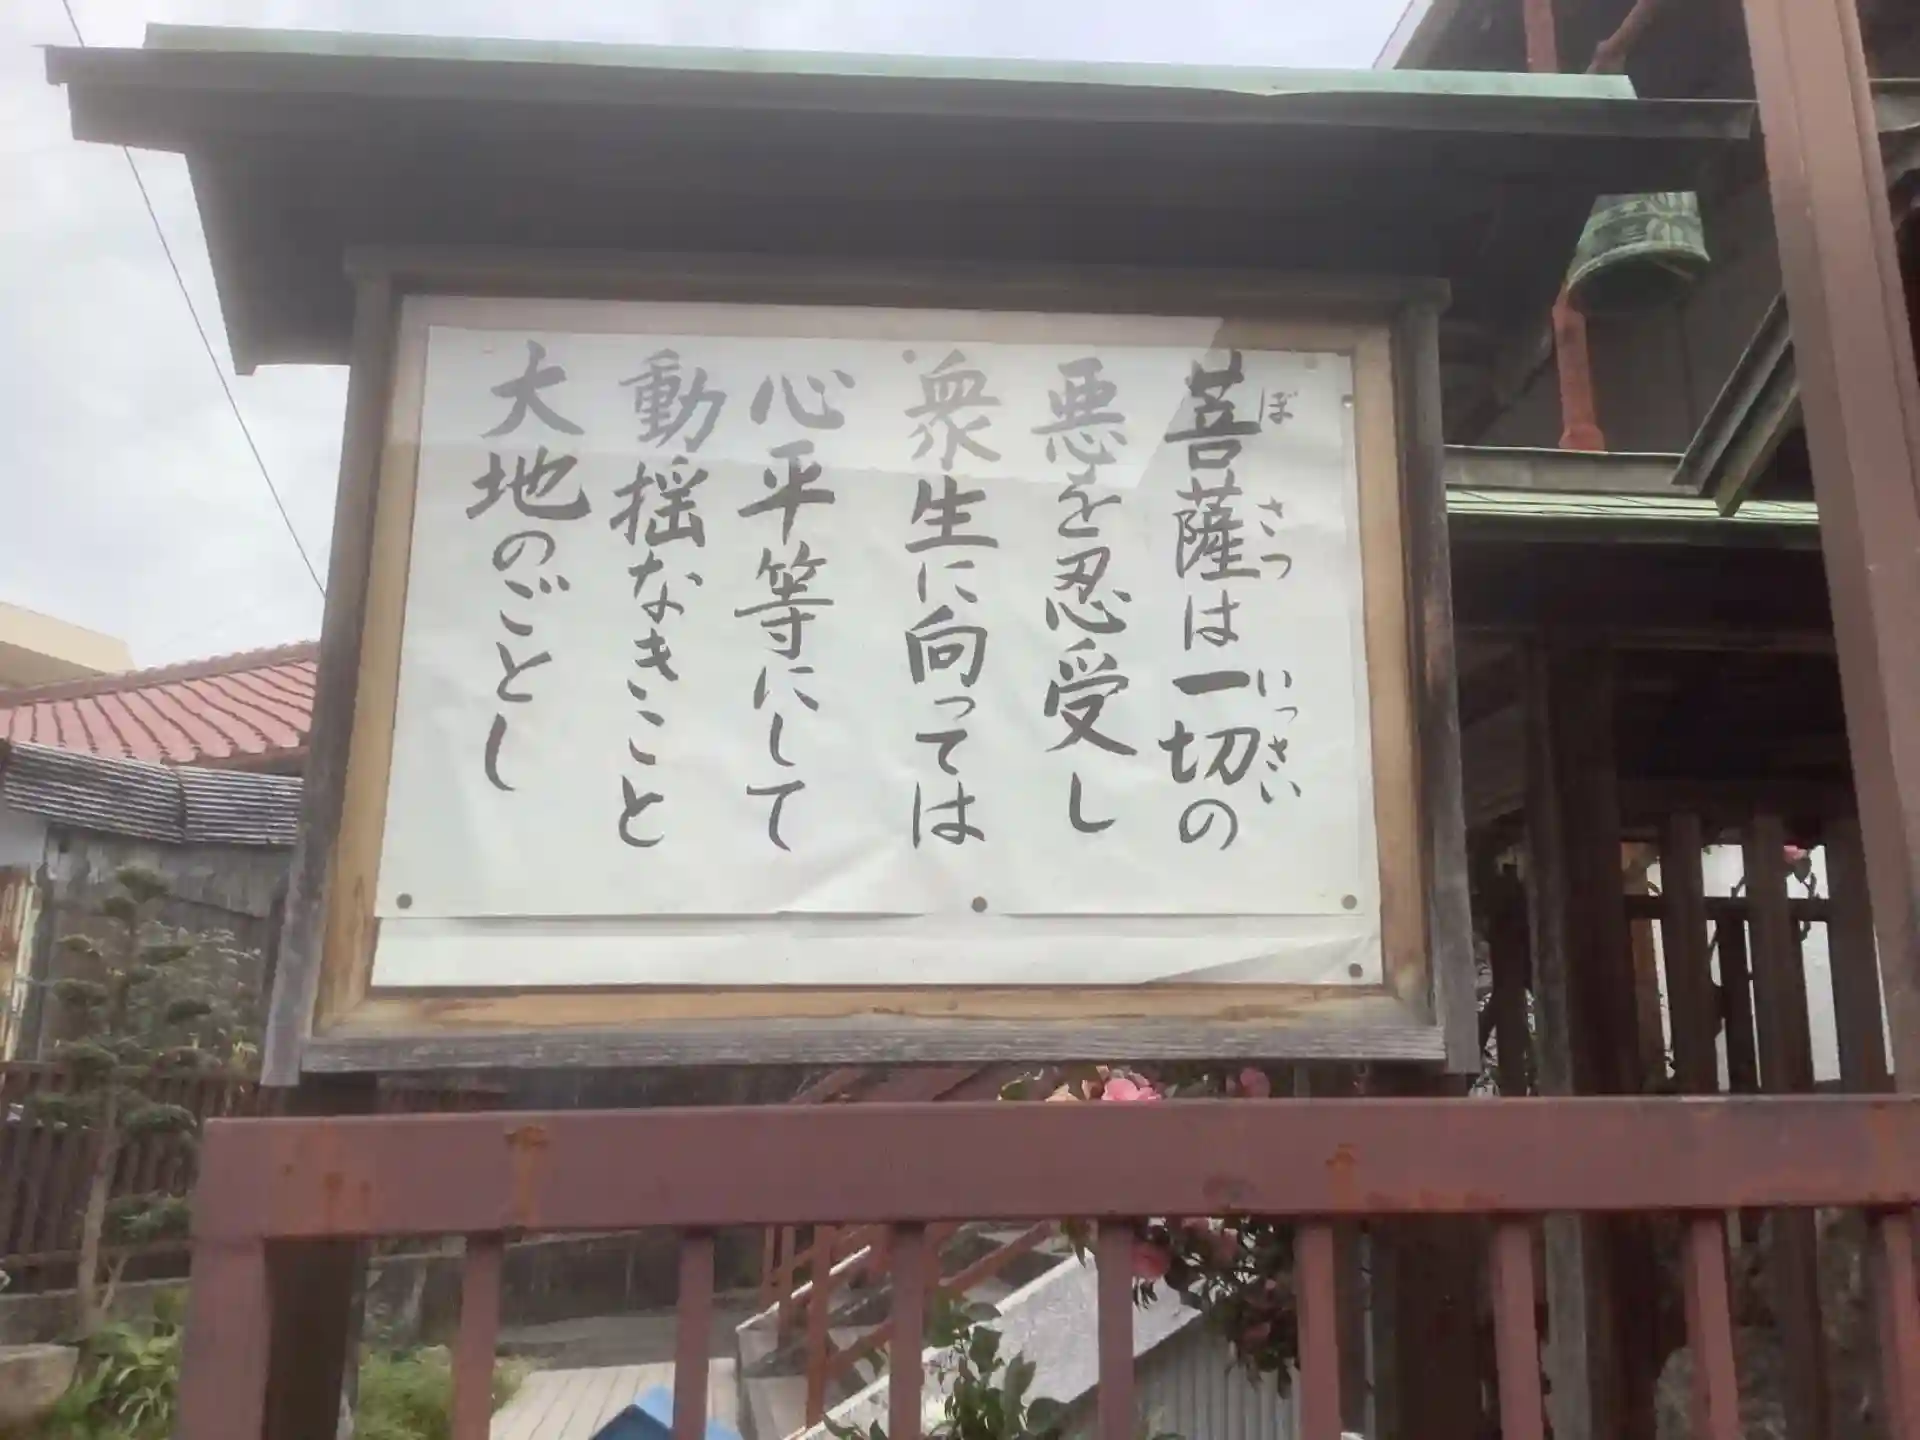 菩薩は一切の
ぼさつ
いっさい
悪を忍受し
衆生に向っては
心平等にして
動揺なきこと
大地のごとし